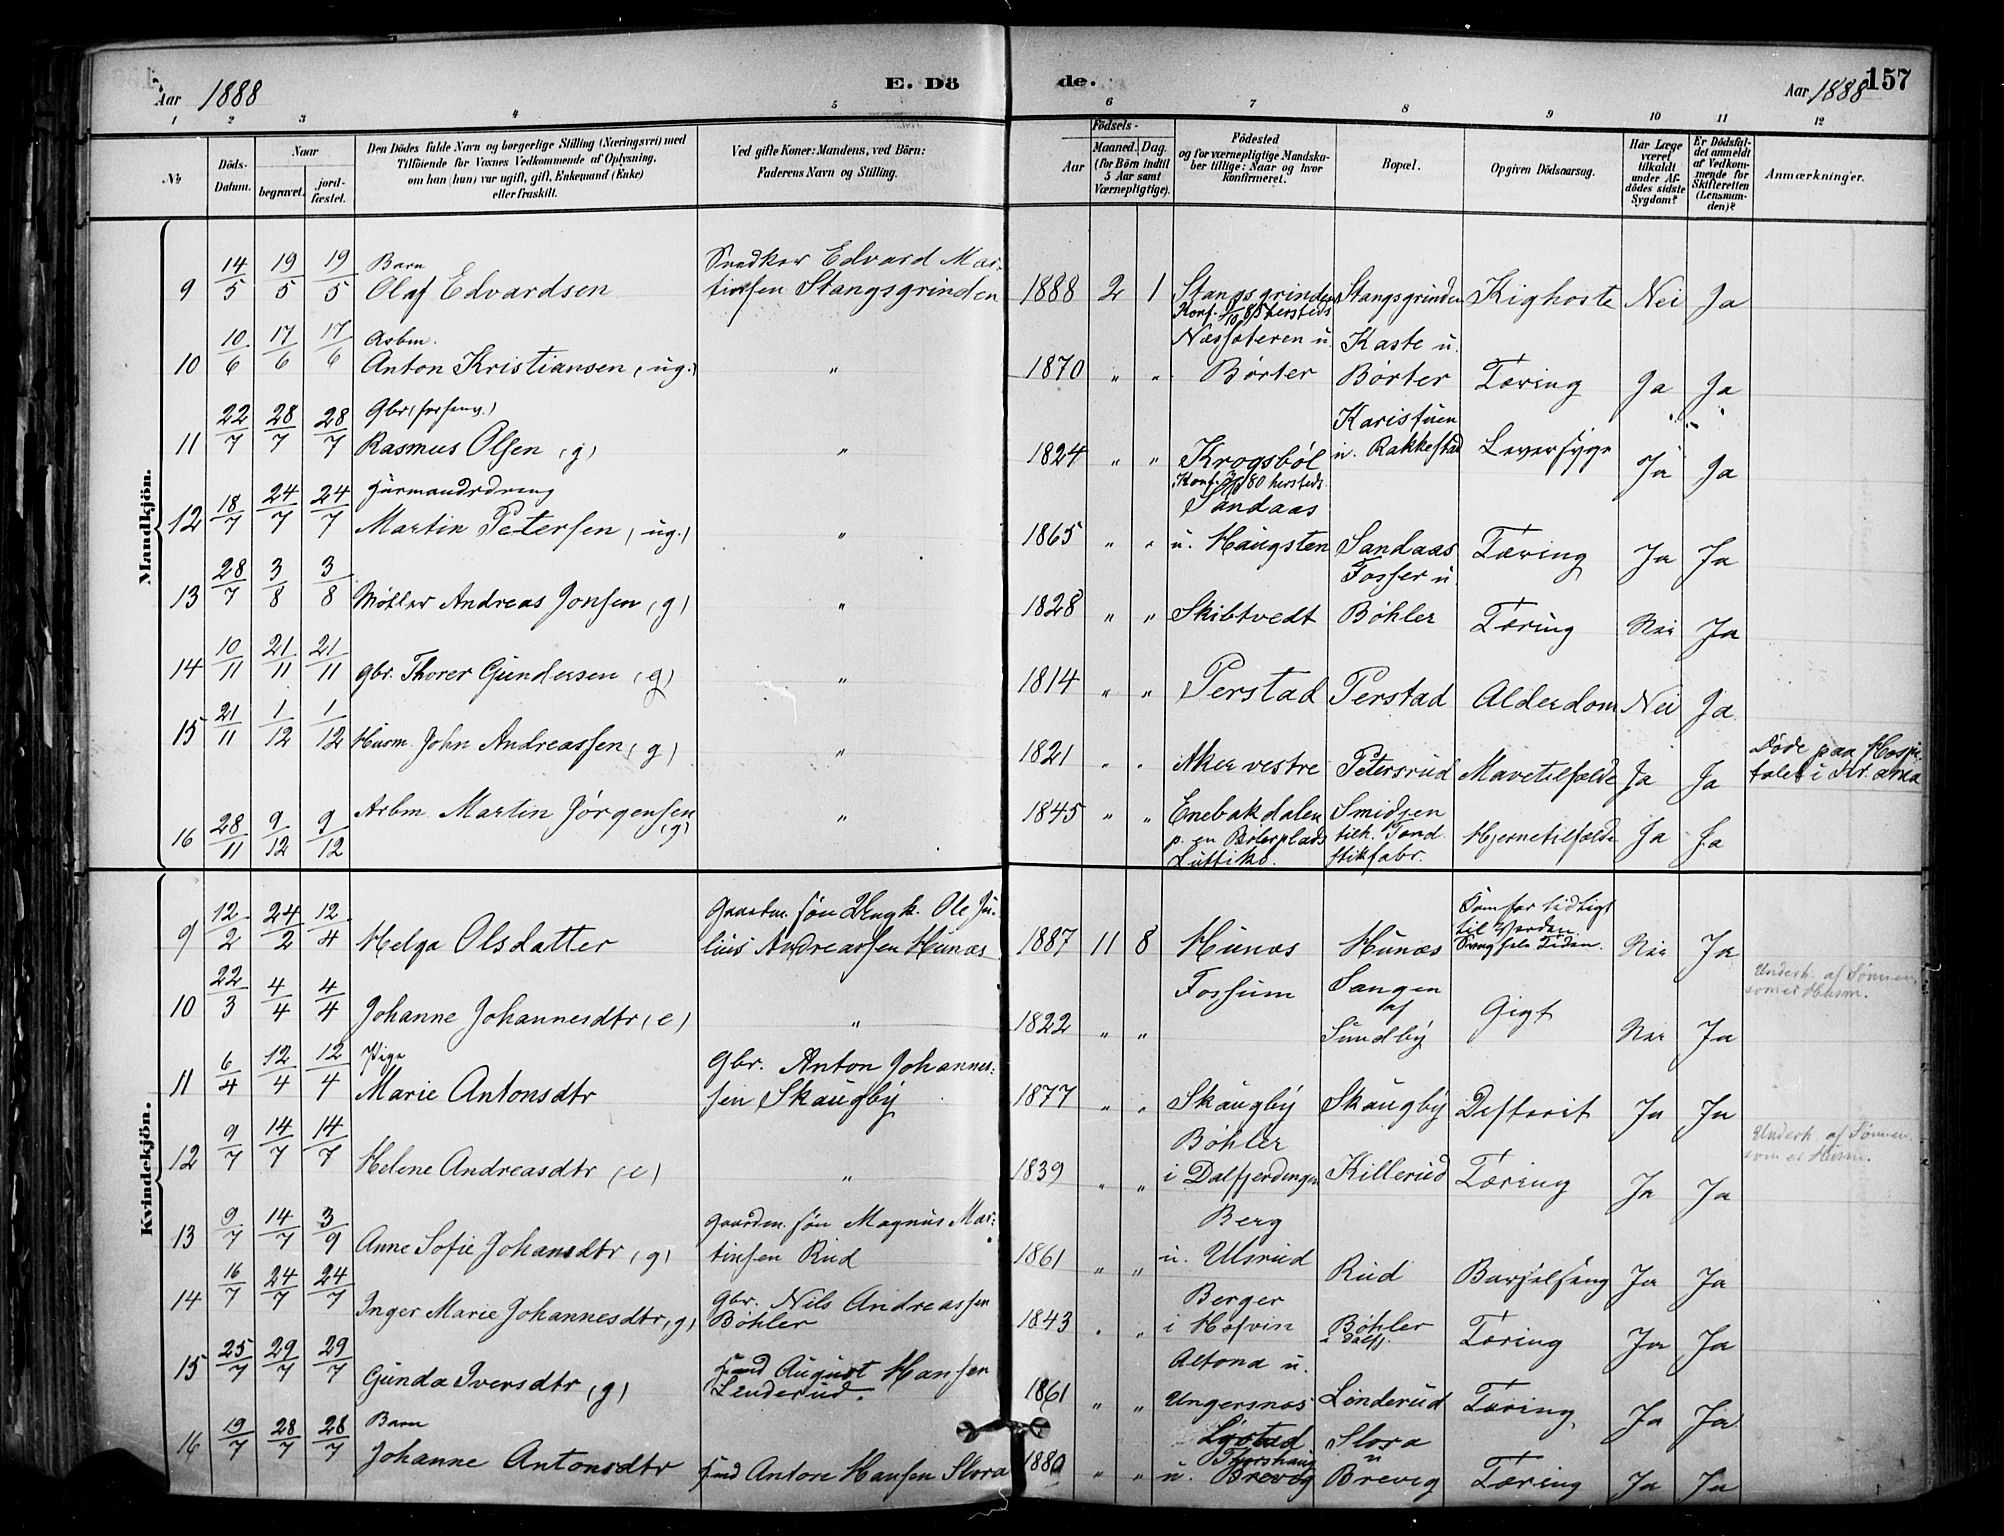 Aar 1888
E. Döde.
Aar 1888
157
1 2 3 4 5 6 7 8 9 10 11 12
No.
Döds-Datum.
Naar
begravet.
jord-fæstet.
Den Dödes fulde Navn og borgerlige Stilling (Næringsvei) med
Tilföiende for Voxnes Vedkommende af Oplysning,
om han (hun) var ugift, gift, Enkemand (Enke)
eller fraskilt.
Ved gifte Koner: Mandens, ved Börn:
Faderens Navn og Stilling.
Födsels-
Aar
Maaned. Dag.
(for Börn indtil
5 Aar samt
Værnepligtige).
Födested
og for værnepligtige Mandska-
ber tillige: Naar og hvor
konfirmeret.
Bopæl.
Opgiven Dödsaarsag.
Har Læge
været
tilkaldt
under Af-
dödes sidste
Sygdom?
Er Dödsfal-
det anmeldt
af Vedkom-
mende for
Skifteretten
(Lensman-
den)?
Anmærkninger.
Mandkjön.
9 14/5 19/5 19/5 Barn Olaf Edvardsen Snedker Edvard Martinsen Stangsgrinden 1888 2 1 Stangsgrinden Stangsgrinden Kighoste Nei Ja
10 10/6 17/6 17/6 Arbm. Anton Kristiansen (ug.) " 1870 " " Konf. hersteds Næssæteren u. Börter Kaste u. Börter Tæring Ja Ja
11 22/7 28/7 28/7 Gbr. Rasmus Olsen (g) " 1824 " " Krogsböl Karistuen u. Rakkestad Leversyge Ja Ja
12 18/7 24/7 24/7 Husmandsdreng Martin Petersen (ug.) " 1865 " " Konf. 80 hersteds. Sandaas u. Haugsten Sandaas Tæring Ja Ja
13 28/7 3/8 3/8 Möller Andreas Jonsen (g) " 1828 " " Skibtvedt Fosser u. Böhler Tæring Nei Ja
14 10/11 21/11 21/11 Gbr. Thorer Gundersen (g) " 1814 " " Perstad Perstad Alderdom Nei Ja
15 21/11 1/12 1/12 Husm. John Andreassen (g) " 1821 " " Aker vestre Petersrud Mavetilfælde Ja Ja Döde paa Hospitalet i Kr.ania
16 28/11 9/12 9/12 Arbm. Martin Jörgensen (g) " 1845 " " Enebakdalen p. en Boterplads Luttiko. Smidsen tilh. Tændstikfabr. Hjernetilfælde Ja Ja
Kvindekjön.
9 12/2 24/2 12/4 Helga Olsdatter Gaardm. sön Ungk. Ole Julius Andreassen Hunæs 1887 11 8 Hunæs Hunæs Som for tidligt til Verden. Svag hele Tiden. Nei Ja
10 22/3 4/4 4/4 Johanne Johannesdtr (e) " 1822 " " Fossum Sangen af Sundby Gigt Nei Ja Underh. af Sönnen, som er Husm.
11 6/4 12/4 12/4 Pige Marie Antonsdtr Gbr. Anton Johannessen Skaugby 1877 " " Skaugby Skaugby Difterit Ja Ja
12 9/7 14/7 14/7 Helene Andreasdtr (e) " 1839 " " Böhler i Dalfjerdingen Killerud Tæring Ja Ja Underh. af Sönnen som er Husm.
13 9/7 14/7 3/9 Anne Sofie Johansdtr (g) Gaardm. sön Magnus Martinsen Rud 1861 " " Berg u. Ulsrud Rud Barselseng Ja Ja
14 16/7 24/7 24/7 Inger Marie Johannesdtr (g) Gbr. Nils Andreassen Böhler 1843 " " Berger i Hofvin Böhler i Dalfj. Tæring Ja Ja
15 25/7 29/7 29/7 Gunda Iversdtr (g) Husmd August Hansen Linderud. 1861 " " Altona u. Ungersnæs Linderud Tæring Ja Ja
16 19/7 28/7 28/7 Barn Johanne Antonsdtr Husmd Anton Hansen Slora 1880 " " Thorshaug u. Brevig Slora u Brevig Tæring Ja Ja